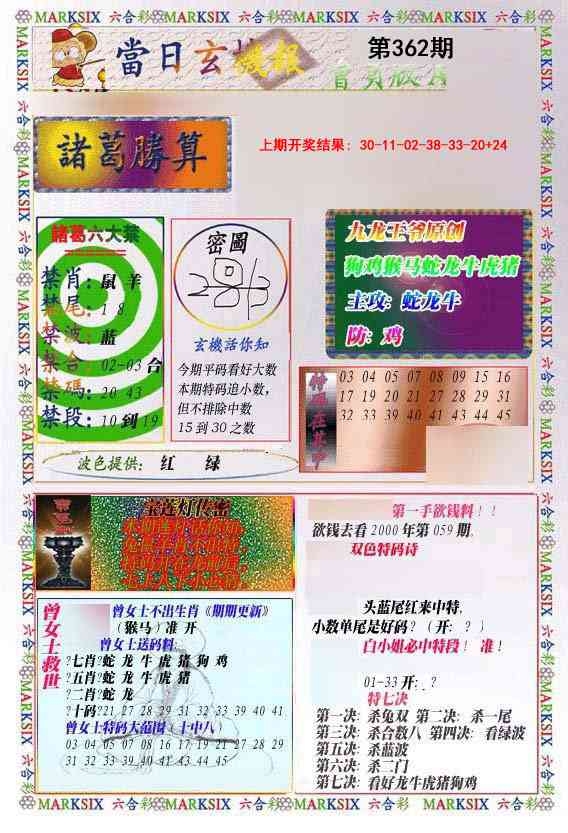 MARKSIX 六合彩 MARKSIX 六合彩 MARKSIX 六合彩 MARKSIX 六合彩 MARKSIX 六合彩
當日玄機報
第362期
上期开奖结果：30-11-02-38-33-20+24
諸葛勝算
諸葛六大禁
禁肖：鼠 羊
禁尾：1 8
禁波：蓝
禁合：02-03 合
禁碼：20 43
禁段：10 到 19
密圖
玄機話你知
今期平码看好大数
本期特码追小数，
但不排除中数
15 到 30 之数
九龙王爷原创
狗鸡猴马蛇龙牛虎猪
主攻：蛇龙牛
防：鸡
特码在其中
03 04 05 07 08 09 15 16
17 19 20 21 28 29 31
32 33 39 40 41 43 44 45
波色提供： 红 绿
宝莲灯传密
第一手欲钱料！！
欲钱去看 2000 年第 059 期.
双色特码诗
头蓝尾红来中特,
小数单尾是好码? (开: ?)
白小姐必中特段！ 准！
01-33 开:. ?
特七决
第一决: 杀兔双 第二决: 杀一尾
第三决: 杀合数八 第四决: 看绿波
第五决: 杀蓝波
第六决: 杀二门
第七决: 看好龙牛虎猪狗鸡
曾女士救世
曾女士不出生肖《期期更新》
(猴马) 准 开
曾女士送码料:
?七肖?蛇 龙 牛 虎 猪 狗 鸡
?五肖?蛇 龙 牛 虎 猪
?二肖?蛇 龙
?十码?21 27 28 29 31 32 33 39 40 41
曾女士特码大范围 (十中八)
03 04 05 07 08 16 17 19 21 27 28 29
31 32 33 39 40 41 43 44 45
MARKSIX 六合彩 MARKSIX 六合彩 MARKSIX 六合彩 MARKSIX 六合彩 MARKSIX 六合彩